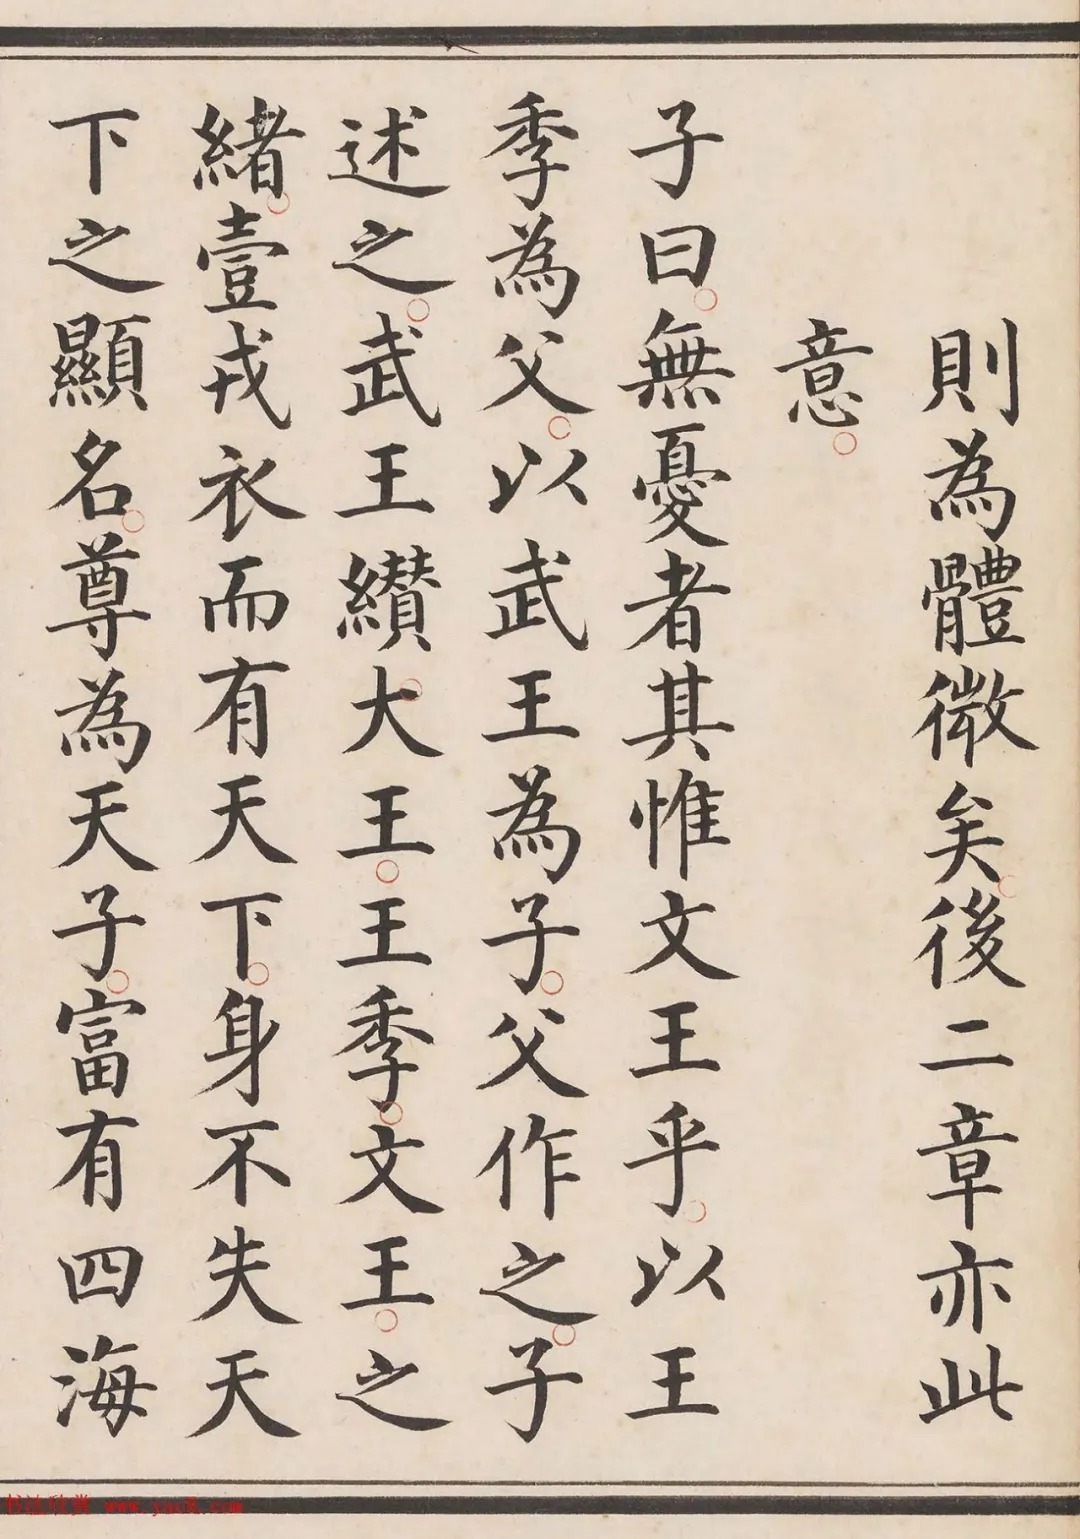 則為體微矣後二章亦此
意
子曰無憂者其惟文王乎以王
季為父以武王為子父作之子
述之武王纘大王王季文王之
緒壹戎衣而有天下身不失天
下之顯名尊為天子富有四海
书法欣赏 www.yac8.com